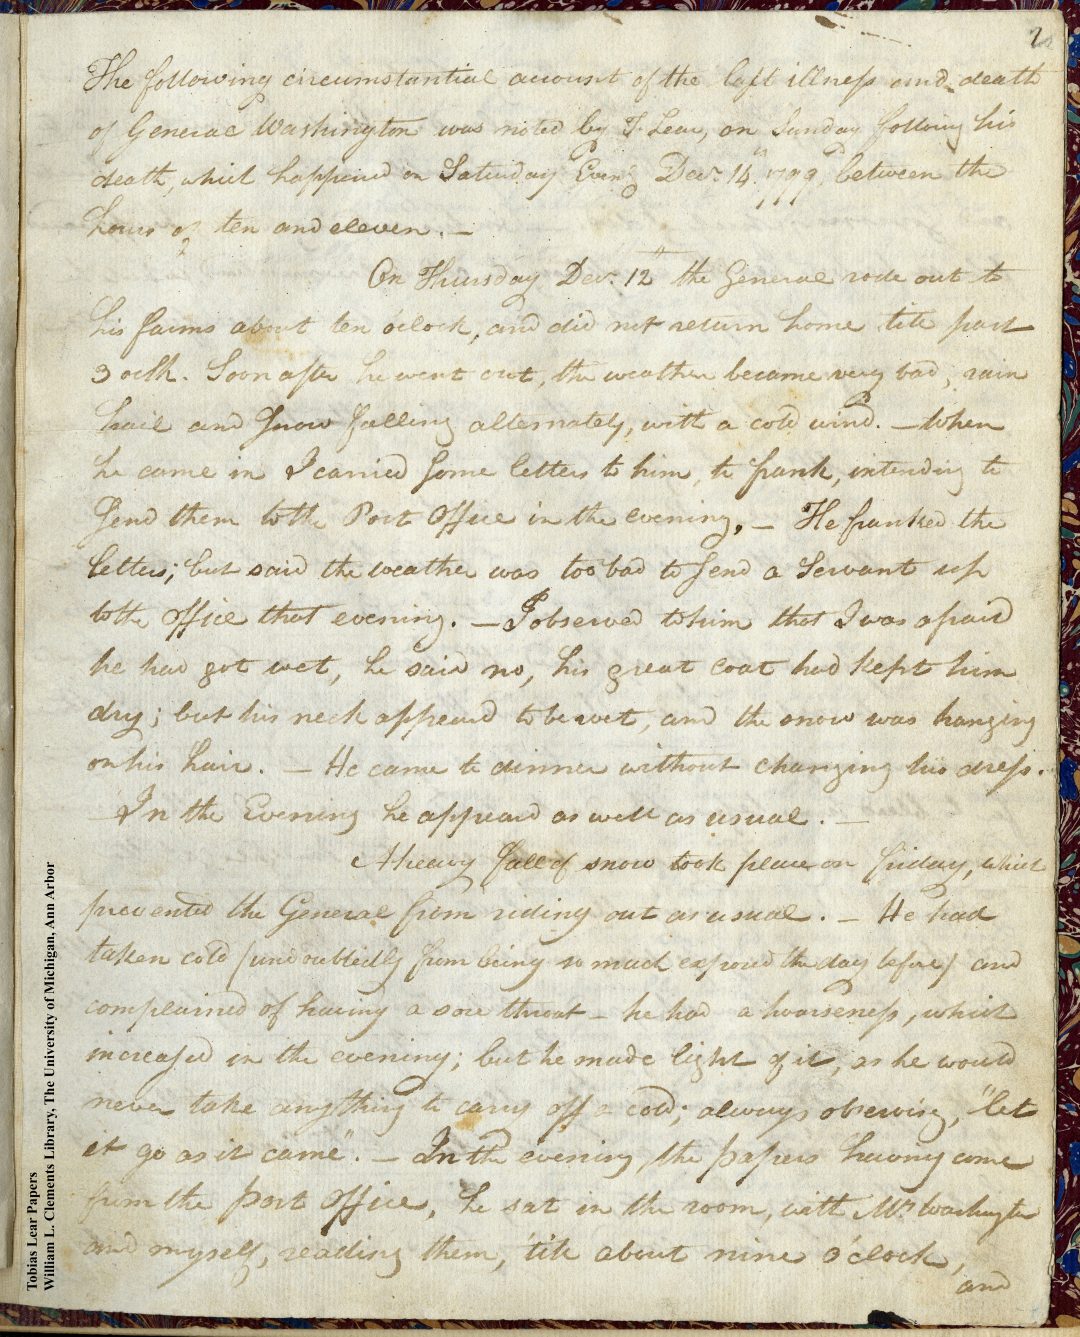 2
The following circumstantial account of the last illness and death
of General Washington was noted by T. Lear, on Sunday following his
death, which happened on Saturday Eveng Decr. 14th 1799, between the
hours of ten and eleven. —
On Thursday Decr. 12th the General rode out to
his farms about ten o'clock, and did not return home till past
3 oclk. Soon after he went out, the weather became very bad, rain
hail and snow falling alternately, with a cold wind. — When
he came in I carried some letters to him, to frank, intending to
send them to the Post Office in the evening. — He franked the
letters; but said the weather was too bad to send a servant up
to the office that evening. — I observed to him that I was afraid
he had got wet, he said no, his great coat had kept him
dry; but his neck appeared to be wet, and the snow was hanging
on his hair. — He came to dinner without changing his dress.
In the Evening he appeared as well as usual. —
A heavy fall of snow took place on friday, which
prevented the General from riding out as usual. — He had
taken cold (undoubtedly from being so much exposed the day before) and
complained of having a sore throat — he had a hoarseness, which
increased in the evening; but he made light of it, as he would
never take anything to carry off a cold; always observing, "let
it go as it came". — In the evening, the papers having come
from the post office, he sat in the room, with Mrs. Washington
and myself, reading them, 'till about nine o'clock,
and
Tobias Lear Papers
William L. Clements Library, The University of Michigan, Ann Arbor